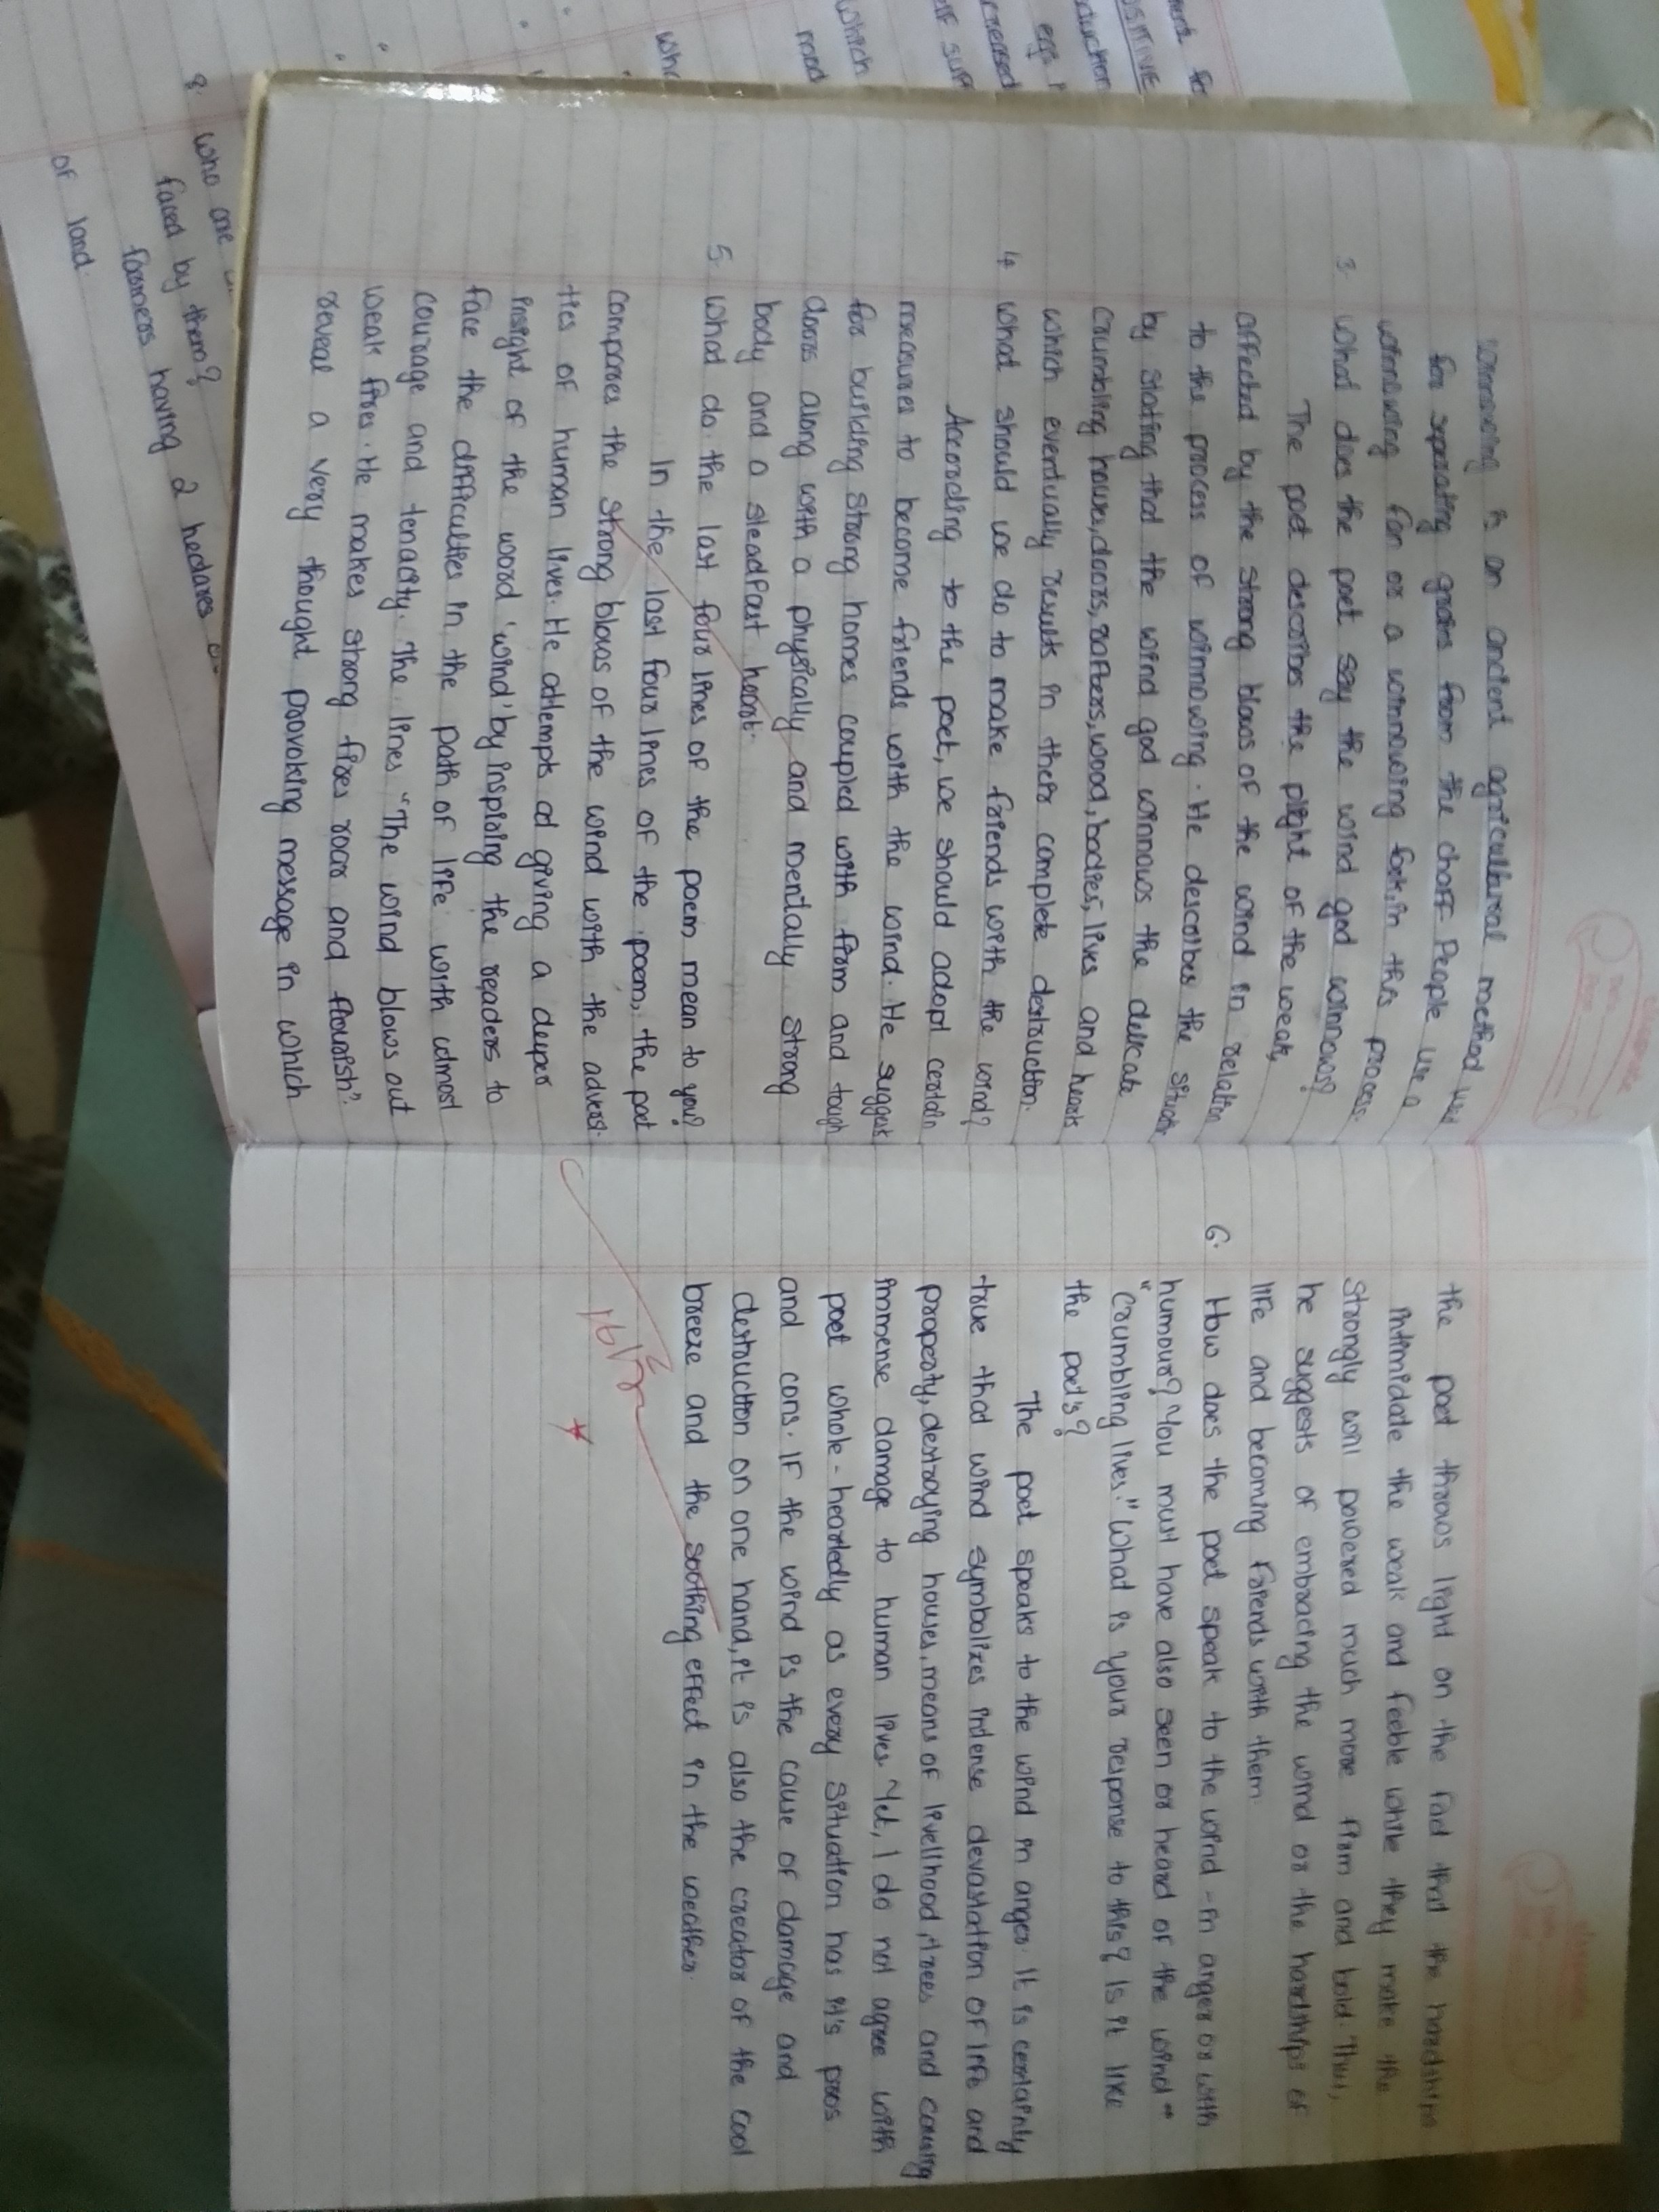 winnowing is an ancient agricultural method used
for separating grains from the chaff. People use a
winnowing fan or a winnowing fork in this process.
3. What does the poet say the wind god winnows?
The poet describes the plight of the weak,
affected by the strong blows of the wind in relation
to the process of winnowing. He describes the
by stating that the wind god winnows the delicate
crumbling houses, doors, rafters, wood, bodies, lives and hearts
which eventually results in their complete destruction.
4. What should we do to make friends with the wind?
According to the poet, we should adopt certain
measures to become friends with the wind. He suggests
for building strong homes coupled with firm and tough
doors along with a physically and mentally strong
body and a steadfast heart.
5. What do the last four lines of the poem mean to you?
In the last four lines of the poem, the poet
compares the strong blows of the wind with the adversi-
ties of human lives. He attempts at giving a deeper
insight of the word 'wind' by inspiring the readers to
face the difficulties in the path of life with utmost
courage and tenacity. The lines "The wind blows out
weak fires. He makes strong fires roar and flourish".
reveal a very thought provoking message in which
the poet throws light on the fact that the hardships
intimidate the weak and feeble while they make the
strongly will powered much more firm and bold. Thus,
he suggests of embracing the wind or the hardships of
life and becoming friends with them.
6. How does the poet speak to the wind - in anger or with
humour? You must have also seen or heard of the wind
"crumbling lives." What is your response to this? Is it like
the poet's?
The poet speaks to the wind in anger. It is certainly
true that wind symbolizes intense devastation of life and
property, destroying houses, means of livelihood, trees and causing
immense damage to human lives. Yet, I do not agree with
poet whole-heartedly as every situation has it's pros
and cons. If the wind is the cause of damage and
destruction on one hand, it is also the creator of the cool
breeze and the soothing effect in the weather.
8. Who are
faced by them?
farmers having 2 hectares
of land.
which